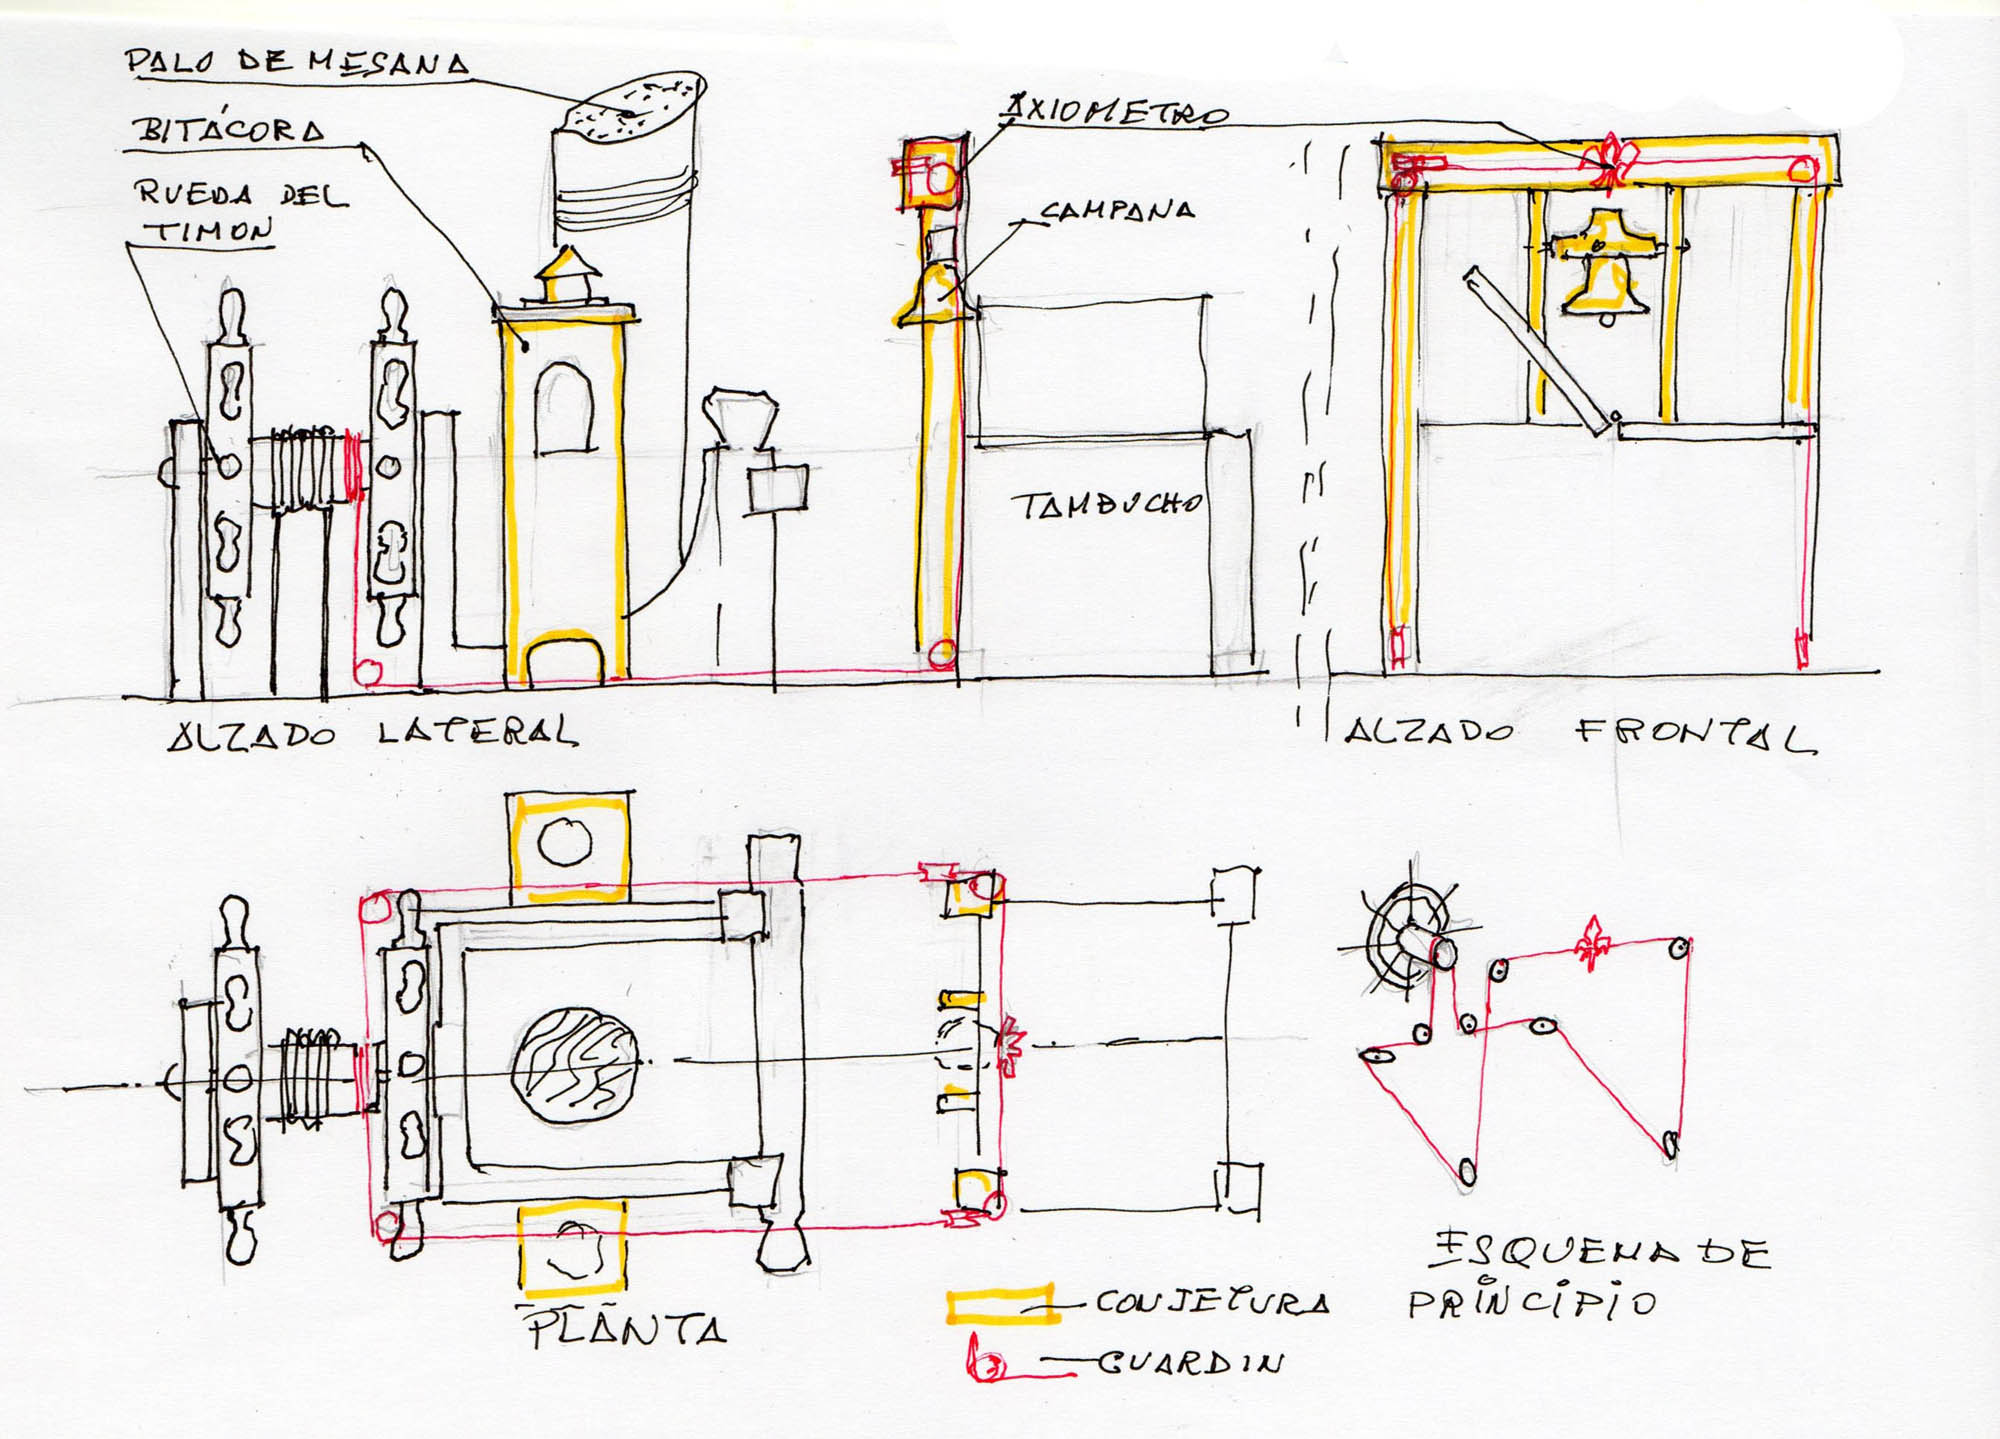 PALO DE MESANA
BITÁCORA
RUEDA DEL
TIMON
AXIOMETRO
CAMPANA
TAMBUCHO
ALZADO LATERAL
ALZADO FRONTAL
PLANTA
CONJETURA
GUARDIN
ESQUEMA DE
PRINCIPIO